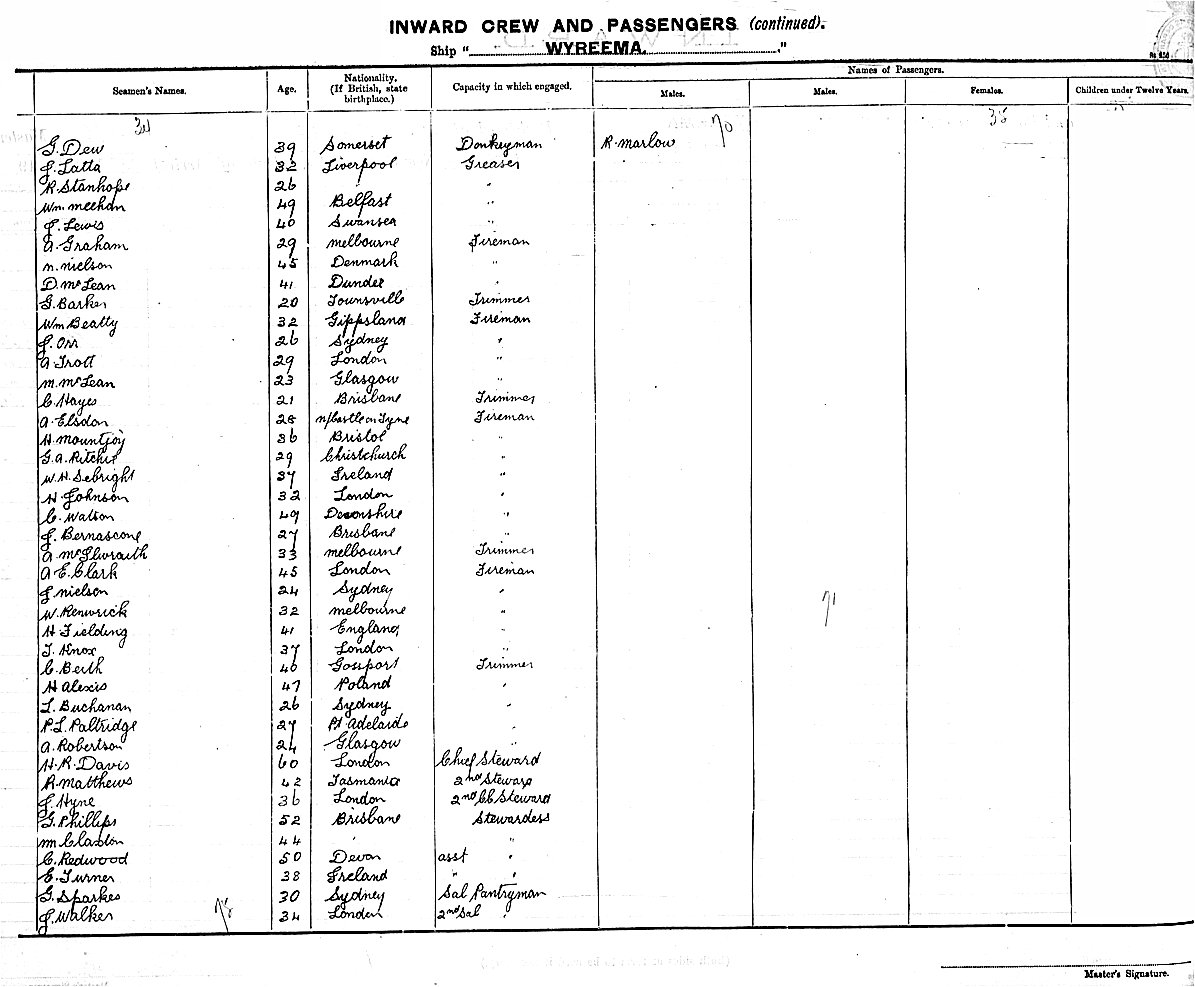 INWARD CREW AND PASSENGERS (continued).
Ship " WYREEMA. "
Seamen's Names. Age. Nationality. (If British, state birthplace.) Capacity in which engaged. Names of Passengers.
Males. Males. Females. Children under Twelve Years.
34 70 38
G. Dew 39 Somerset Donkeyman R. Marlow
J. Latta 32 Liverpool Greaser
R. Stanhope 26 " "
Wm. Meehan 49 Belfast "
J. Lewis 40 Swansea "
A. Graham 29 Melbourne Fireman
N. Nielson 45 Denmark "
D. McLean 41 Dundee "
G. Barker 20 Townsville Trimmer
Wm Beatty 32 Gippsland Fireman
J. Orr 26 Sydney "
A. Trott 29 London "
M. McLean 23 Glasgow "
C. Hayes 21 Brisbane Trimmer
A. Elsdon 28 N/Castle on Tyne Fireman
H. Mountjoy 36 Bristol "
G. A. Ritchie 29 Christchurch "
W. H. Sebright 37 Ireland "
H. Johnson 32 London "
C. Watson 49 Devonshire "
J. Bernascone 27 Brisbane "
A. McIlwraith 33 Melbourne Trimmer
A. E. Clark 45 London Fireman
J Nielson 24 Sydney "
W. Renwick 32 Melbourne " 71
H. Fielding 41 England "
T. Knox 37 London "
C. Beith 46 Gosport Trimmer
H Alexis 47 Poland "
L. Buchanan 26 Sydney "
P. L. Paltridge 27 Pt Adelaide "
A. Robertson 24 Glasgow "
H. R. Davis 60 London Chief Steward
R. Matthews 42 Tasmania 2nd Steward
J. Hyne 36 London 2nd Cl Steward
G. Phillips 52 Brisbane Stewardess
M Claxton 44 " "
C. Redwood 50 Devon asst "
E. Turner 38 Ireland " "
G. Sparkes 30 Sydney Sal Pantryman
J. Walker 34 London 2nd Sal "
Master's Signature.